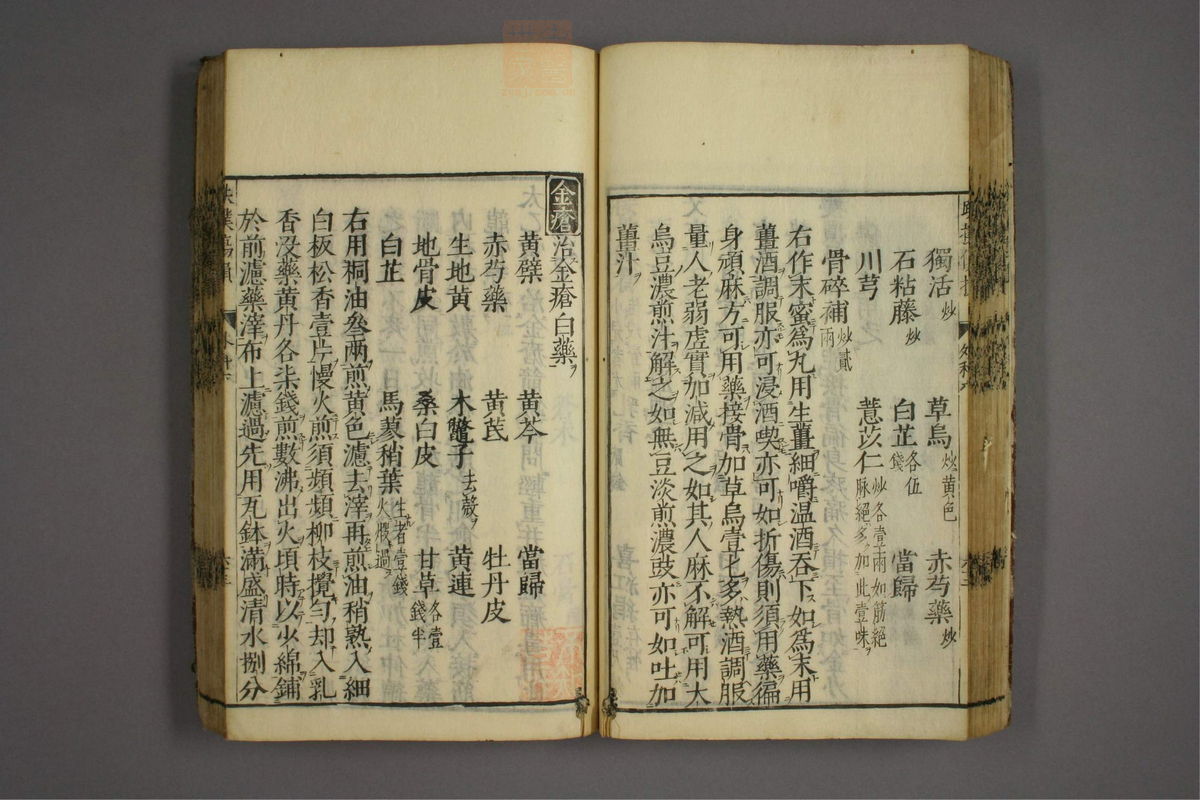 獨活炒 草烏炒黄色 赤芍藥炒
石粘藤炒 白芷各伍錢 當歸
川芎 薏苡仁炒各壹兩如筋絕脉絕多加此壹味
骨碎補炒貳兩
右作末蜜爲丸用生薑細嚼温酒吞下如爲末用
薑酒調服亦可浸酒喫亦可如折傷則須用藥徧
身頑麻方可用藥接骨加草烏壹匕多熱酒調服
量人老弱虚實加减用之如其人麻不解可用大
烏豆濃煎汁解之如無豆淡煎濃豉亦可如吐加
薑汁
金瘡 治金瘡白藥
黄蘗 黄芩 當歸
赤芍藥 黄芪 牡丹皮
生地黄 木鼈子去殻 黄連
地骨皮 桑白皮 甘草各壹錢半
白芷 馬蓼稍葉生者壹錢火煆過
右用桐油叁兩煎黄色濾去滓再煎油稍熟入細
白板松香壹片慢火煎須頻頻柳枝攪匀却入乳
香沒藥黄丹各柒錢煎數沸出火頃時以少綿鋪
於前濾藥滓布上濾過先用瓦鉢滿盛清水捌分